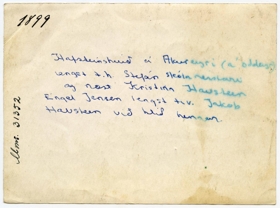 1899
Hafsteinshúsið á Akureyri (á Oddeyri)
lengst t.h. Stefán skólameistari
og næst Kristinn Havsteen
Engel Jensen lengst t.v. Jakob
Havsteen við hlið hennar.
Mms. 31352